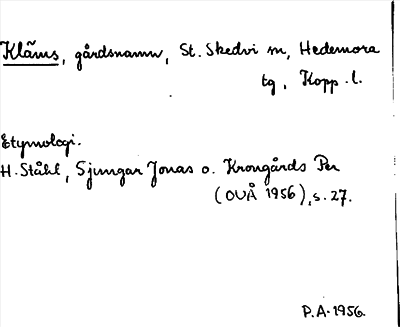 Kläms, gårdsnamn, St. Skedvi sn, Hedemora
tg, Kopp. l.
Etymologi.
H. Ståhl, Sjungar Jonas o. Krongårds Per
(OUÅ 1956), s. 27.
P.A. 1956.